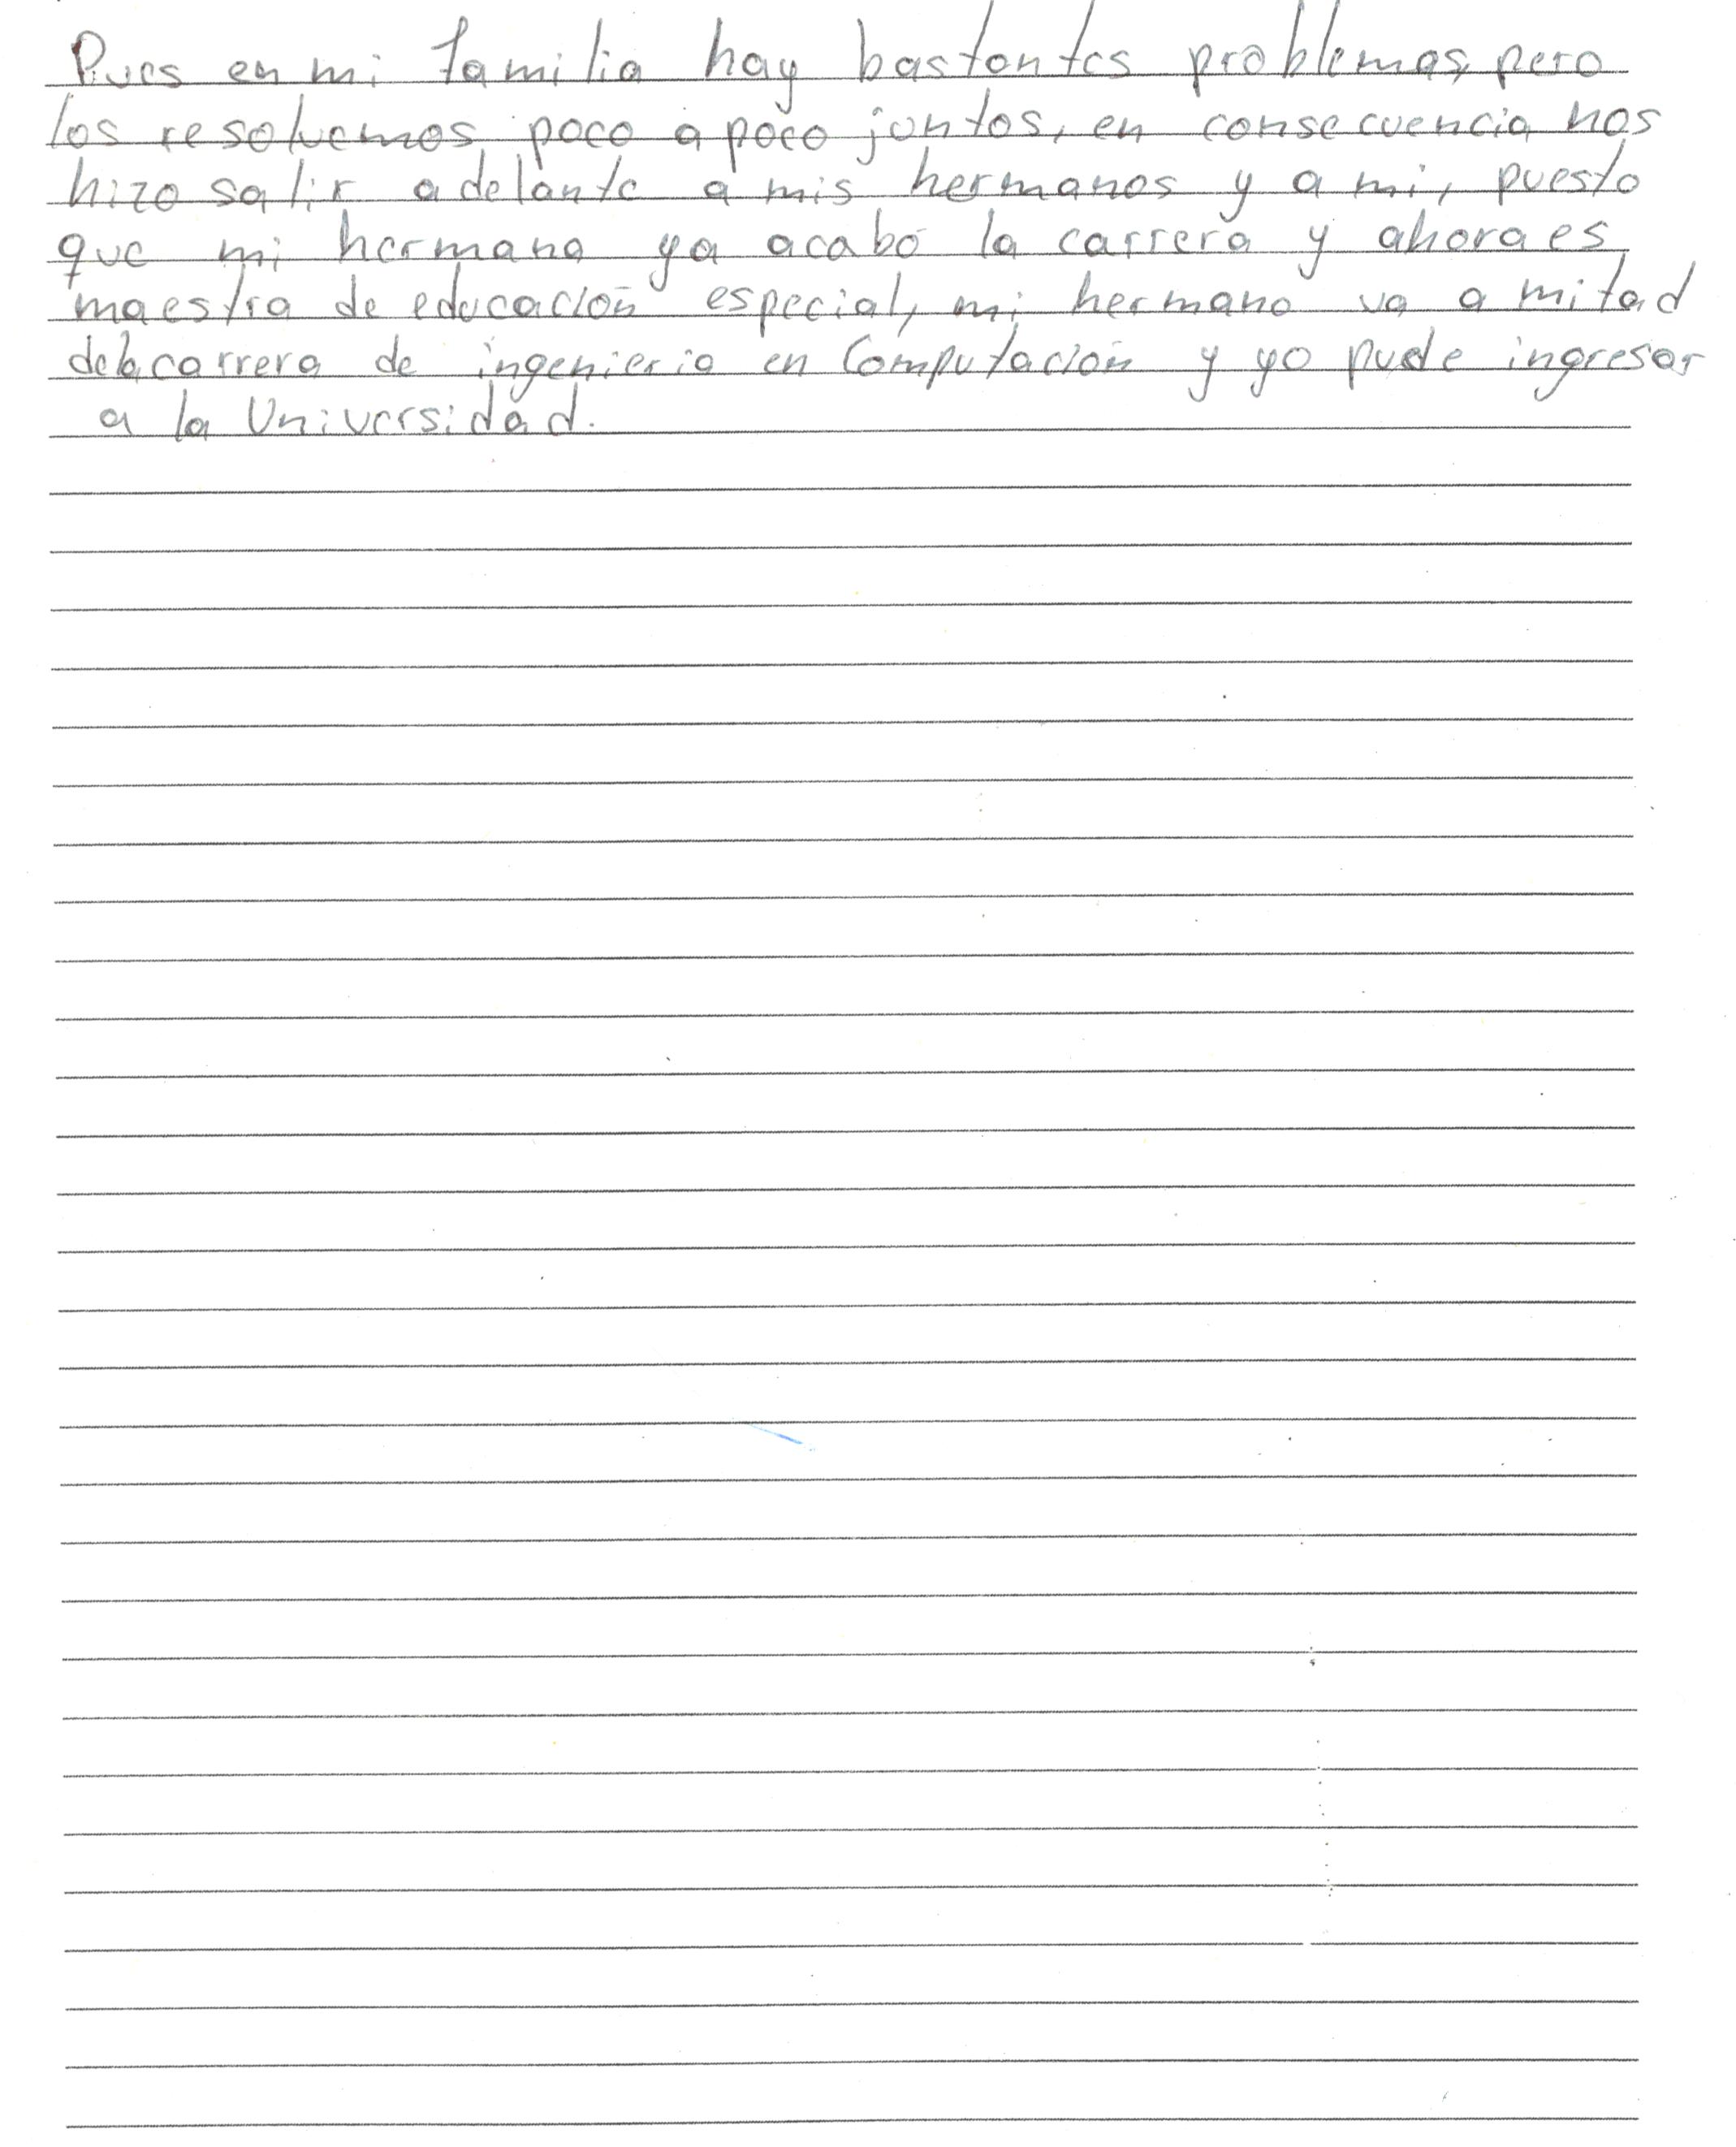 Pues en mi familia hay bastantes problemas, pero
los resolvemos poco a poco juntos, en consecuencia nos
hizo salir adelante a mis hermanos y a mi, puesto
que mi hermana ya acabó la carrera y ahora es
maestra de educación especial, mi hermano va a mitad
de la carrera de ingenieria en Computación y yo pude ingresar
a la Universidad.